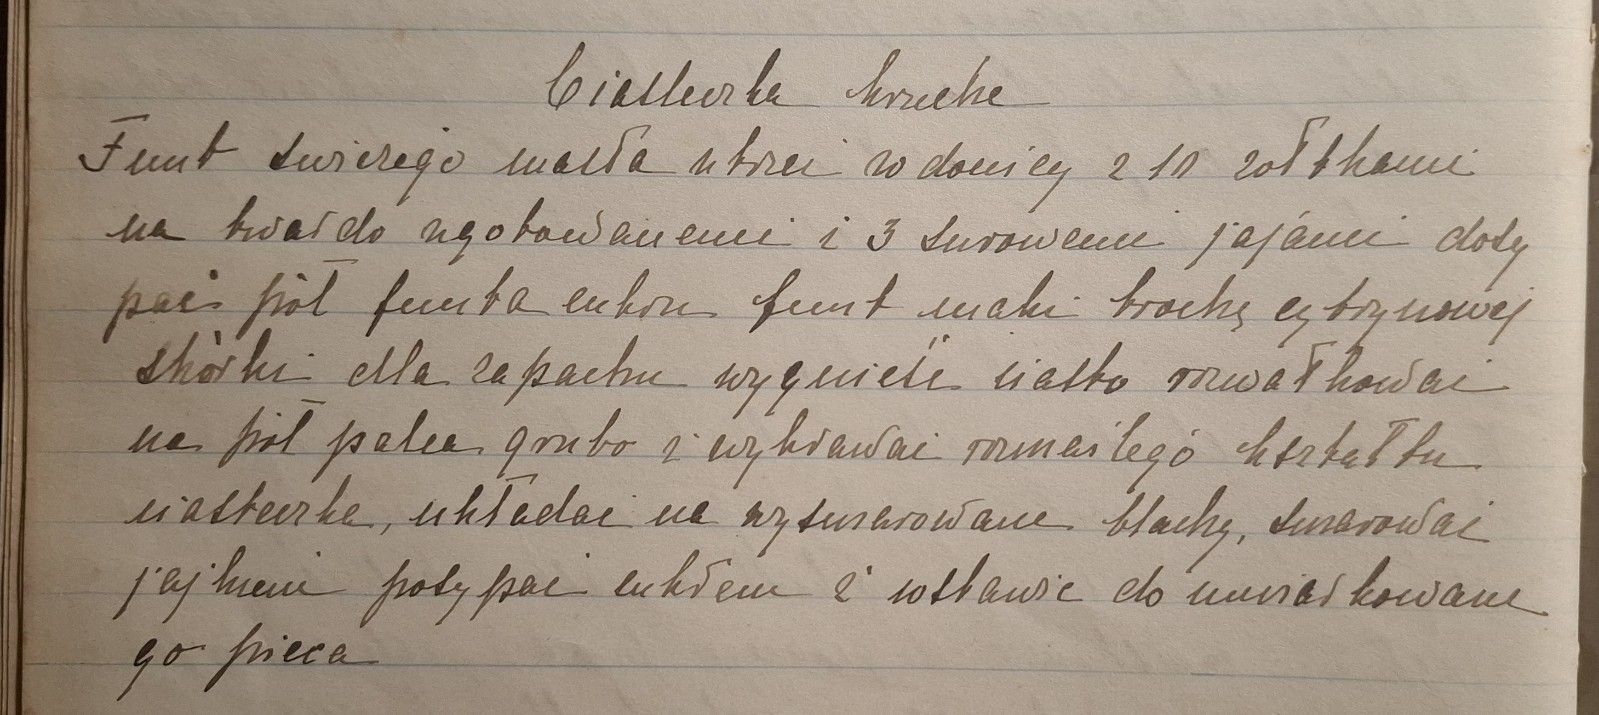 Ciasteczka kruche
Funt swierzego masła utrzei w donicy z 10 zołtkami
na twardo ugotowanemi i 3 surowemi jajámi dosy
pać pół funta cukru funt maki trochę cytrynowej
skórki dla zapachu wygnieść ciasto rozwałkowai
na pół palca grubo i wykrawai rozmaitego ksztattu
ciasteczka, układai na wysmarowane blachy, smarowai
jajkiem posypai cukrem i wstawic do umiarkowane
go pieca